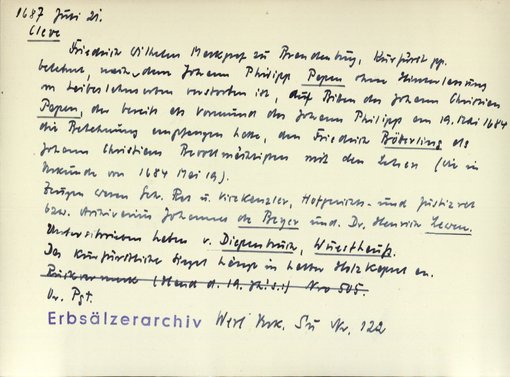 1687 Juni 21.
Cleve
Friedrich Wilhelm Markgraf zu Brandenburg, Kurfürst pp.
belehnt, nachdem Johann Philipp Papen ohne Hinterlassung
von Leibeslehnerben verstorben ist, auf Bitten des Johann Christian
Papen, der bereits als Vormund des Johann Philipp am 19. Mai 1684
die Belehnung empfangen hatte, den Friedrich Bötterling als
Johann Christians Bevollmächtigten mit den Lehen (wie in
Urkunde von 1684 Mai 19).
Zeugen waren Geh. Rat u. Vizekanzler, Hofgerichts- und Justizrat
bzw. Archivarius Johannes de Beyer und Dr. Henrich
Unterschrieben haben v. Diepenbruch, Wuesthauß.
Das kurfürstliche Siegel hängt in halber Holzkapsel an.
Rückvermerk (Hand d. 19. Jhs.:) Nro 505.
Or. Pgt.
Erbsälzerarchiv Werl Urk. Nr. 122